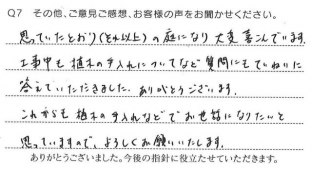 Q7 その他、ご意見ご感想、お客様の声をお聞かせください。
思っていたとおり(それ以上)の庭になり大変喜こんでいます。
工事中も植木の手入れについてなど質問にもていねいに
答えていただきました。ありがとうございます。
これからも植木の手入れなどでお世話になりたいと
思っていますので、よろしくお願いいたします。
ありがとうございました。今後の指針に役立たせていただきます。